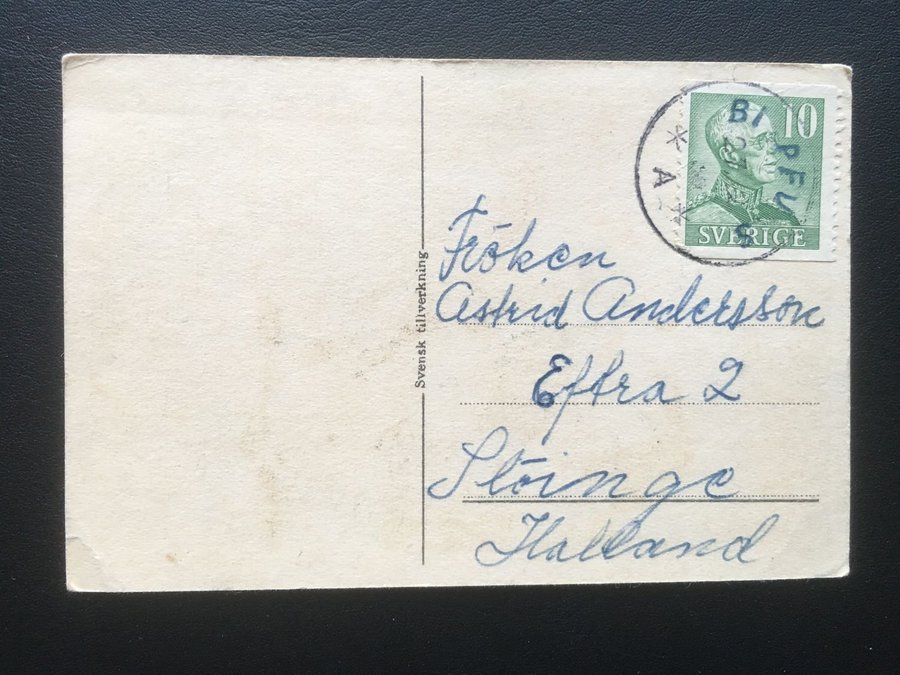 10
SVERIGE
* A *
Svensk tillverkning
Fröken
Astrid Andersson
Eftra 2
Slöinge
Halland